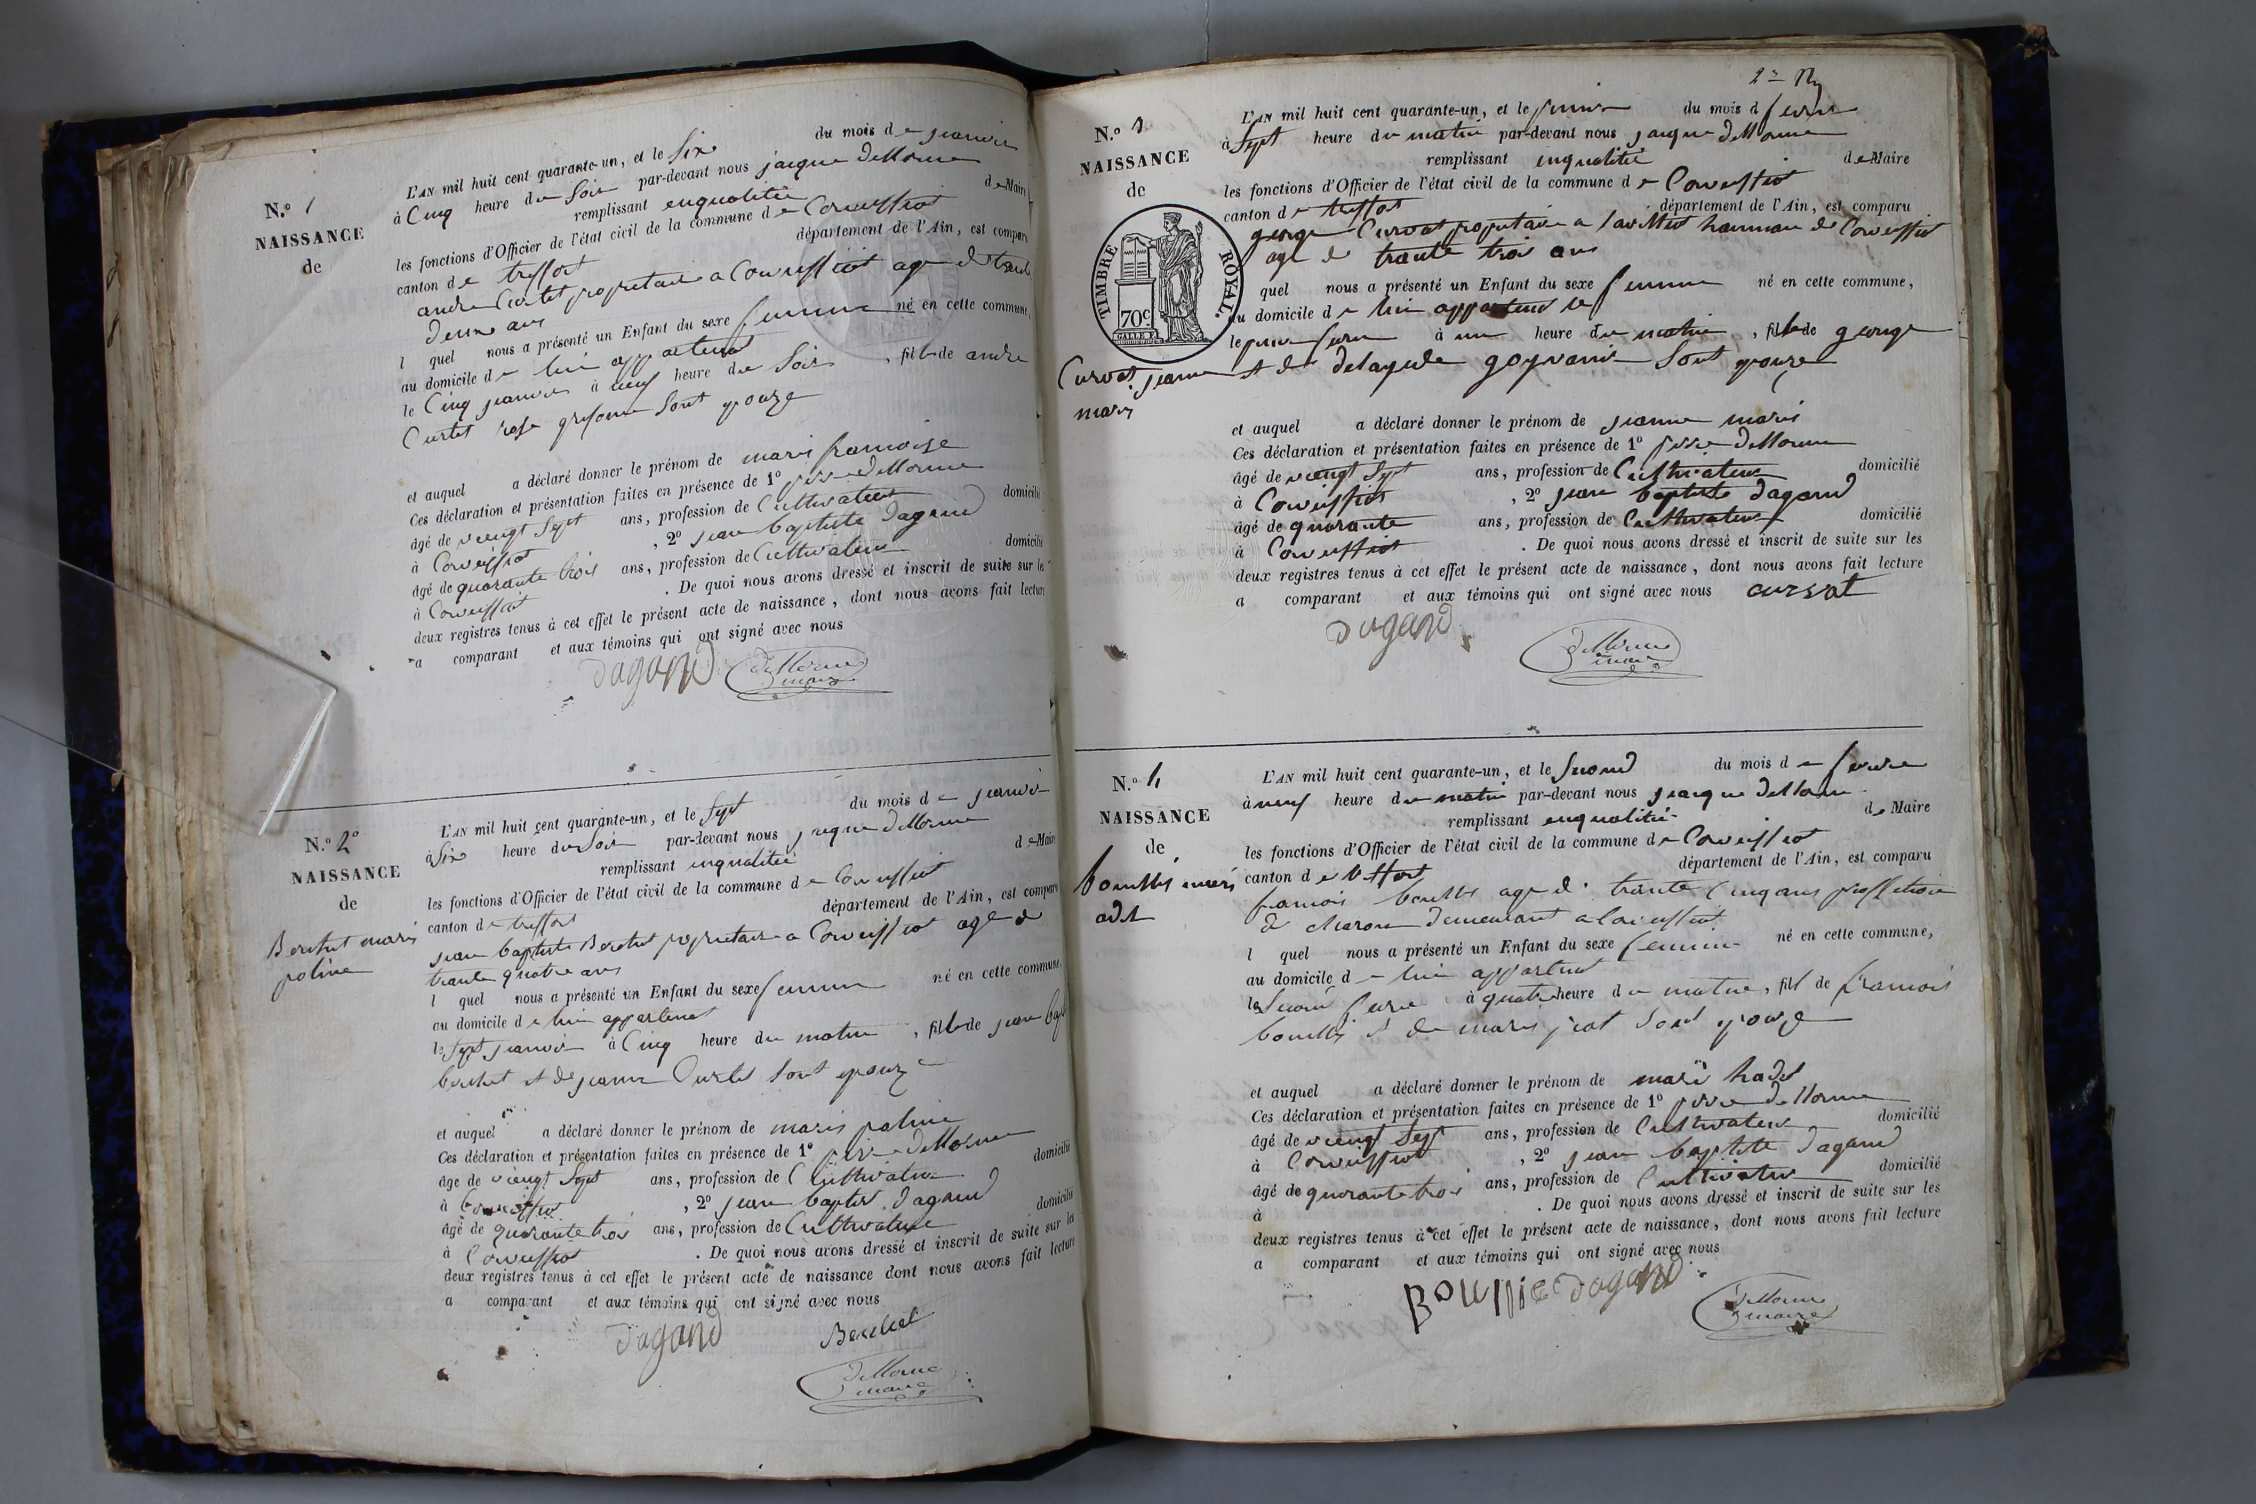 N.º 1
NAISSANCE
de
L'AN mil huit cent quarante-un, et le six du mois de janvier
à Cinq heure du Soir par-devant nous jacque dellorme
remplissant enqualitée de Maire
les fonctions d'Officier de l'état civil de la commune de Corveissiat
canton de treffort département de l'Ain, est comparu
andre Curtet propretaire a Corveissiat age de trante
deux ans
l quel nous a présenté un Enfant du sexe femme né en cette commune,
au domicile de lui appartenet
le Cinq janvier à neuf heure du Soir, fille de andre
Curtet rose sont epouze
et auquel a déclaré donner le prénom de marie francoise
Ces déclaration et présentation faites en présence de 1º piere dellorme
âgé de viengt Sept ans, profession de Cultivateur domicilié
à Corveissiat, 2º jean baptiste dagand
âgé de quarante trois ans, profession de Cultivateur domicilié
à Corveissiat. De quoi nous avons dressé et inscrit de suite sur les
deux registres tenus à cet effet le présent acte de naissance, dont nous avons fait lecture
a comparant et aux témoins qui ont signé avec nous
dagand dellorme
maire
N.º 2º
NAISSANCE
de
Berchet marie
poline
L'AN mil huit cent quarante-un, et le Sept du mois de janvier
à Six heure du Soir par-devant nous jacque dellorme
remplissant enqualitée de Maire
les fonctions d'Officier de l'état civil de la commune de Corveissiat
canton de treffort département de l'Ain, est comparu
jean baptiste Berchet propretaire a Corveissiat age de
trante quatre ans
l quel nous a présenté un Enfant du sexe femme né en cette commune,
au domicile de lui appartenet
le Sept janvier à Cinq heure du matin, fille de jean bapt
berchet et de jeanne Curtet sont epouze
et auquel a déclaré donner le prénom de marie poline
Ces déclaration et présentation faites en présence de 1º piere dellorme
âge de viengt Sept ans, profession de Cultivateur domicilié
à Corveissiat, 2º jean baptiste dagand
âgé de quarante trois ans, profession de Cultivateur domicilié
à Corveissiat. De quoi nous avons dressé et inscrit de suite sur les
deux registres tenus à cet effet le présent acte de naissance dont nous avons fait lecture
a comparant et aux témoins qui ont signé avec nous
dagand Berchet
dellorme
maire
N.º 3
NAISSANCE
de
TIMBRE ROYAL.
70c
Curvat jeanne
marie
L'AN mil huit cent quarante-un, et le premier du mois d fevrier
à Sept heure du matin par-devant nous jacque dellorme
remplissant enqualitée de Maire
les fonctions d'Officier de l'état civil de la commune de Corveissiat
canton de treffort département de l'Ain, est comparu
george Curvat propretaire a hammau de Corveissiat
age de trante trois ans
quel nous a présenté un Enfant du sexe femme né en cette commune,
au domicile de lui appartenet
le à une heure du matin, fille de george
et de sont epouze
et auquel a déclaré donner le prénom de jeanne marie
Ces déclaration et présentation faites en présence de 1º piere dellorme
âgé de viengt Sept ans, profession de Cultivateur domicilié
à Corveissiat, 2º jean baptiste dagand
âgé de quarante ans, profession de Cultivateur domicilié
à Corveissiat. De quoi nous avons dressé et inscrit de suite sur les
deux registres tenus à cet effet le présent acte de naissance, dont nous avons fait lecture
a comparant et aux témoins qui ont signé avec nous curvat
dagand dellorme
maire
N.º 4
NAISSANCE
de
bouillis marie
adel
L'AN mil huit cent quarante-un, et le Second du mois de fevrier
à neuf heure du matin par-devant nous jacque dellorme
remplissant enqualitée de Maire
les fonctions d'Officier de l'état civil de la commune de Corveissiat
canton de treffort département de l'Ain, est comparu
francois age de trante Cinq ans proffetion
de charon demeurant a Corveissiat
l quel nous a présenté un Enfant du sexe femme né en cette commune,
au domicile de lui appartenet
le à quatre heure du matin, fill de francois
et de marie sont epouze
et auquel a déclaré donner le prénom de marie hadel
Ces déclaration et présentation faites en présence de 1º piere dellorme
âgé de viengt Sept ans, profession de Cultivateur domicilié
à Corveissiat, 2º jean baptiste dagand
âgé de quarante trois ans, profession de Cultivateur domicilié
à . De quoi nous avons dressé et inscrit de suite sur les
deux registres tenus à cet effet le présent acte de naissance, dont nous avons fait lecture
a comparant et aux témoins qui ont signé avec nous
dagand dellorme
maire